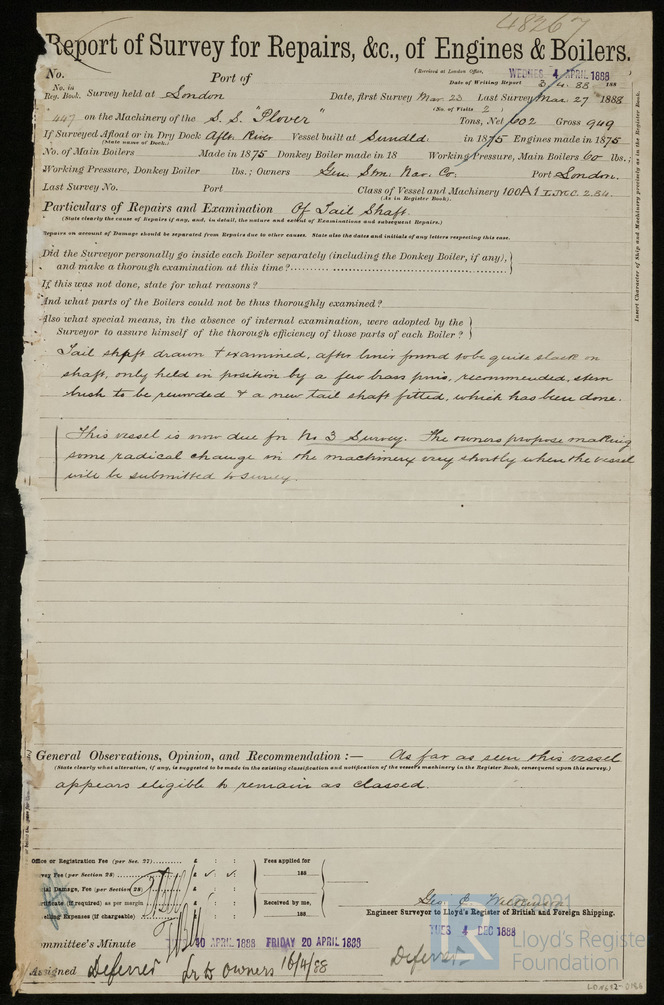 48267
Report of Survey for Repairs, &c., of Engines & Boilers.
No. Port of (Received at London Office, WEDNES 4 APRIL 1888
No. in Reg. Book. Survey held at London Date of Writing Report 3.4.88 188
Date, first Survey Mar. 23 Last Survey Mar. 27 1888
(No. of Visits 2 )
447 on the Machinery of the S.S. "Plover" Tons, Net 602 Gross 949
If Surveyed Afloat or in Dry Dock Aflt. River Vessel built at Sundld. in 1875 Engines made in 1875
(State name of Dock.)
No. of Main Boilers Made in 1875 Donkey Boiler made in 18 Working Pressure, Main Boilers 60 lbs.;
Working Pressure, Donkey Boiler lbs.; Owners Gen. Stm. Nav. Co. Port London.
Last Survey No. Port Class of Vessel and Machinery 100A1 L.M.C. 2.84.
(As in Register Book).
Particulars of Repairs and Examination Of Tail Shaft.
(State clearly the cause of Repairs if any, and, in detail, the nature and extent of Examinations and subsequent Repairs.)
Repairs on account of Damage should be separated from Repairs due to other causes. State also the dates and initials of any letters respecting this case.
Did the Surveyor personally go inside each Boiler separately (including the Donkey Boiler, if any),
and make a thorough examination at this time?
If this was not done, state for what reasons?
And what parts of the Boilers could not be thus thoroughly examined?
Also what special means, in the absence of internal examination, were adopted by the
Surveyor to assure himself of the thorough efficiency of those parts of each Boiler?
Tail shaft drawn & examined, after liner found to be quite slack on
shaft, only held in position by a few brass pins, recommended, stern
bush to be rewooded & a new tail shaft fitted, which has been done.
This vessel is now due for No 3 Survey. The owners propose making
some radical change in the machinery very shortly when the vessel
will be submitted to survey.
Insert Character of Ship and Machinery precisely as in the Register Book.
General Observations, Opinion, and Recommendation:— As far as seen this vessel
(State clearly what alteration, if any, is suggested to be made in the existing classification and notification of the vessel's machinery in the Register Book, consequent upon this survey.)
appears eligible to remain as classed.
Office or Registration Fee (per Sec. 27) £ : : Fees applied for
vey Fee (per Section 28) £ 188
ial Damage, Fee (per Section 28) £ : :
rtificate (if required) as per margin Received by me,
velling Expenses (if chargeable) £ : : 188
Engineer Surveyor to Lloyd's Register of British and Foreign Shipping.
TUES 4 DEC 1888
ommittee's Minute 10 APRIL 1888 FRIDAY 20 APRIL 1888
Assigned Deferred Lr to Owners 16/4/88 Deferred
© 2021
LR
Lloyd's Register
Foundation
LON612-0186